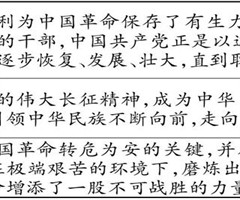 利为中国革命保存了有生力
的干部，中国共产党正是以这
逐步恢复、发展、壮大，直到取
的伟大长征精神，成为中华
引领中华民族不断向前，走向
国革命转危为安的关键，并
在极端艰苦的环境下，磨炼出
增添了一股不可战胜的力量